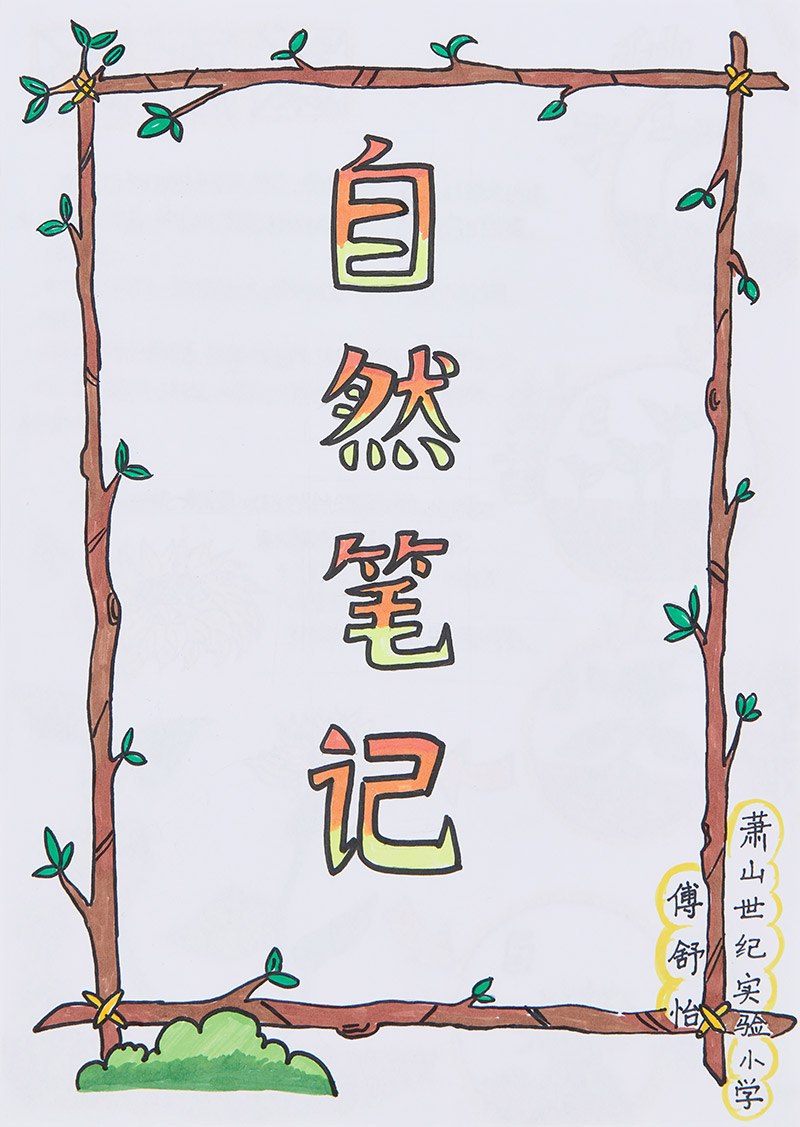 自然笔记
萧山世纪实验小学
傅舒怡